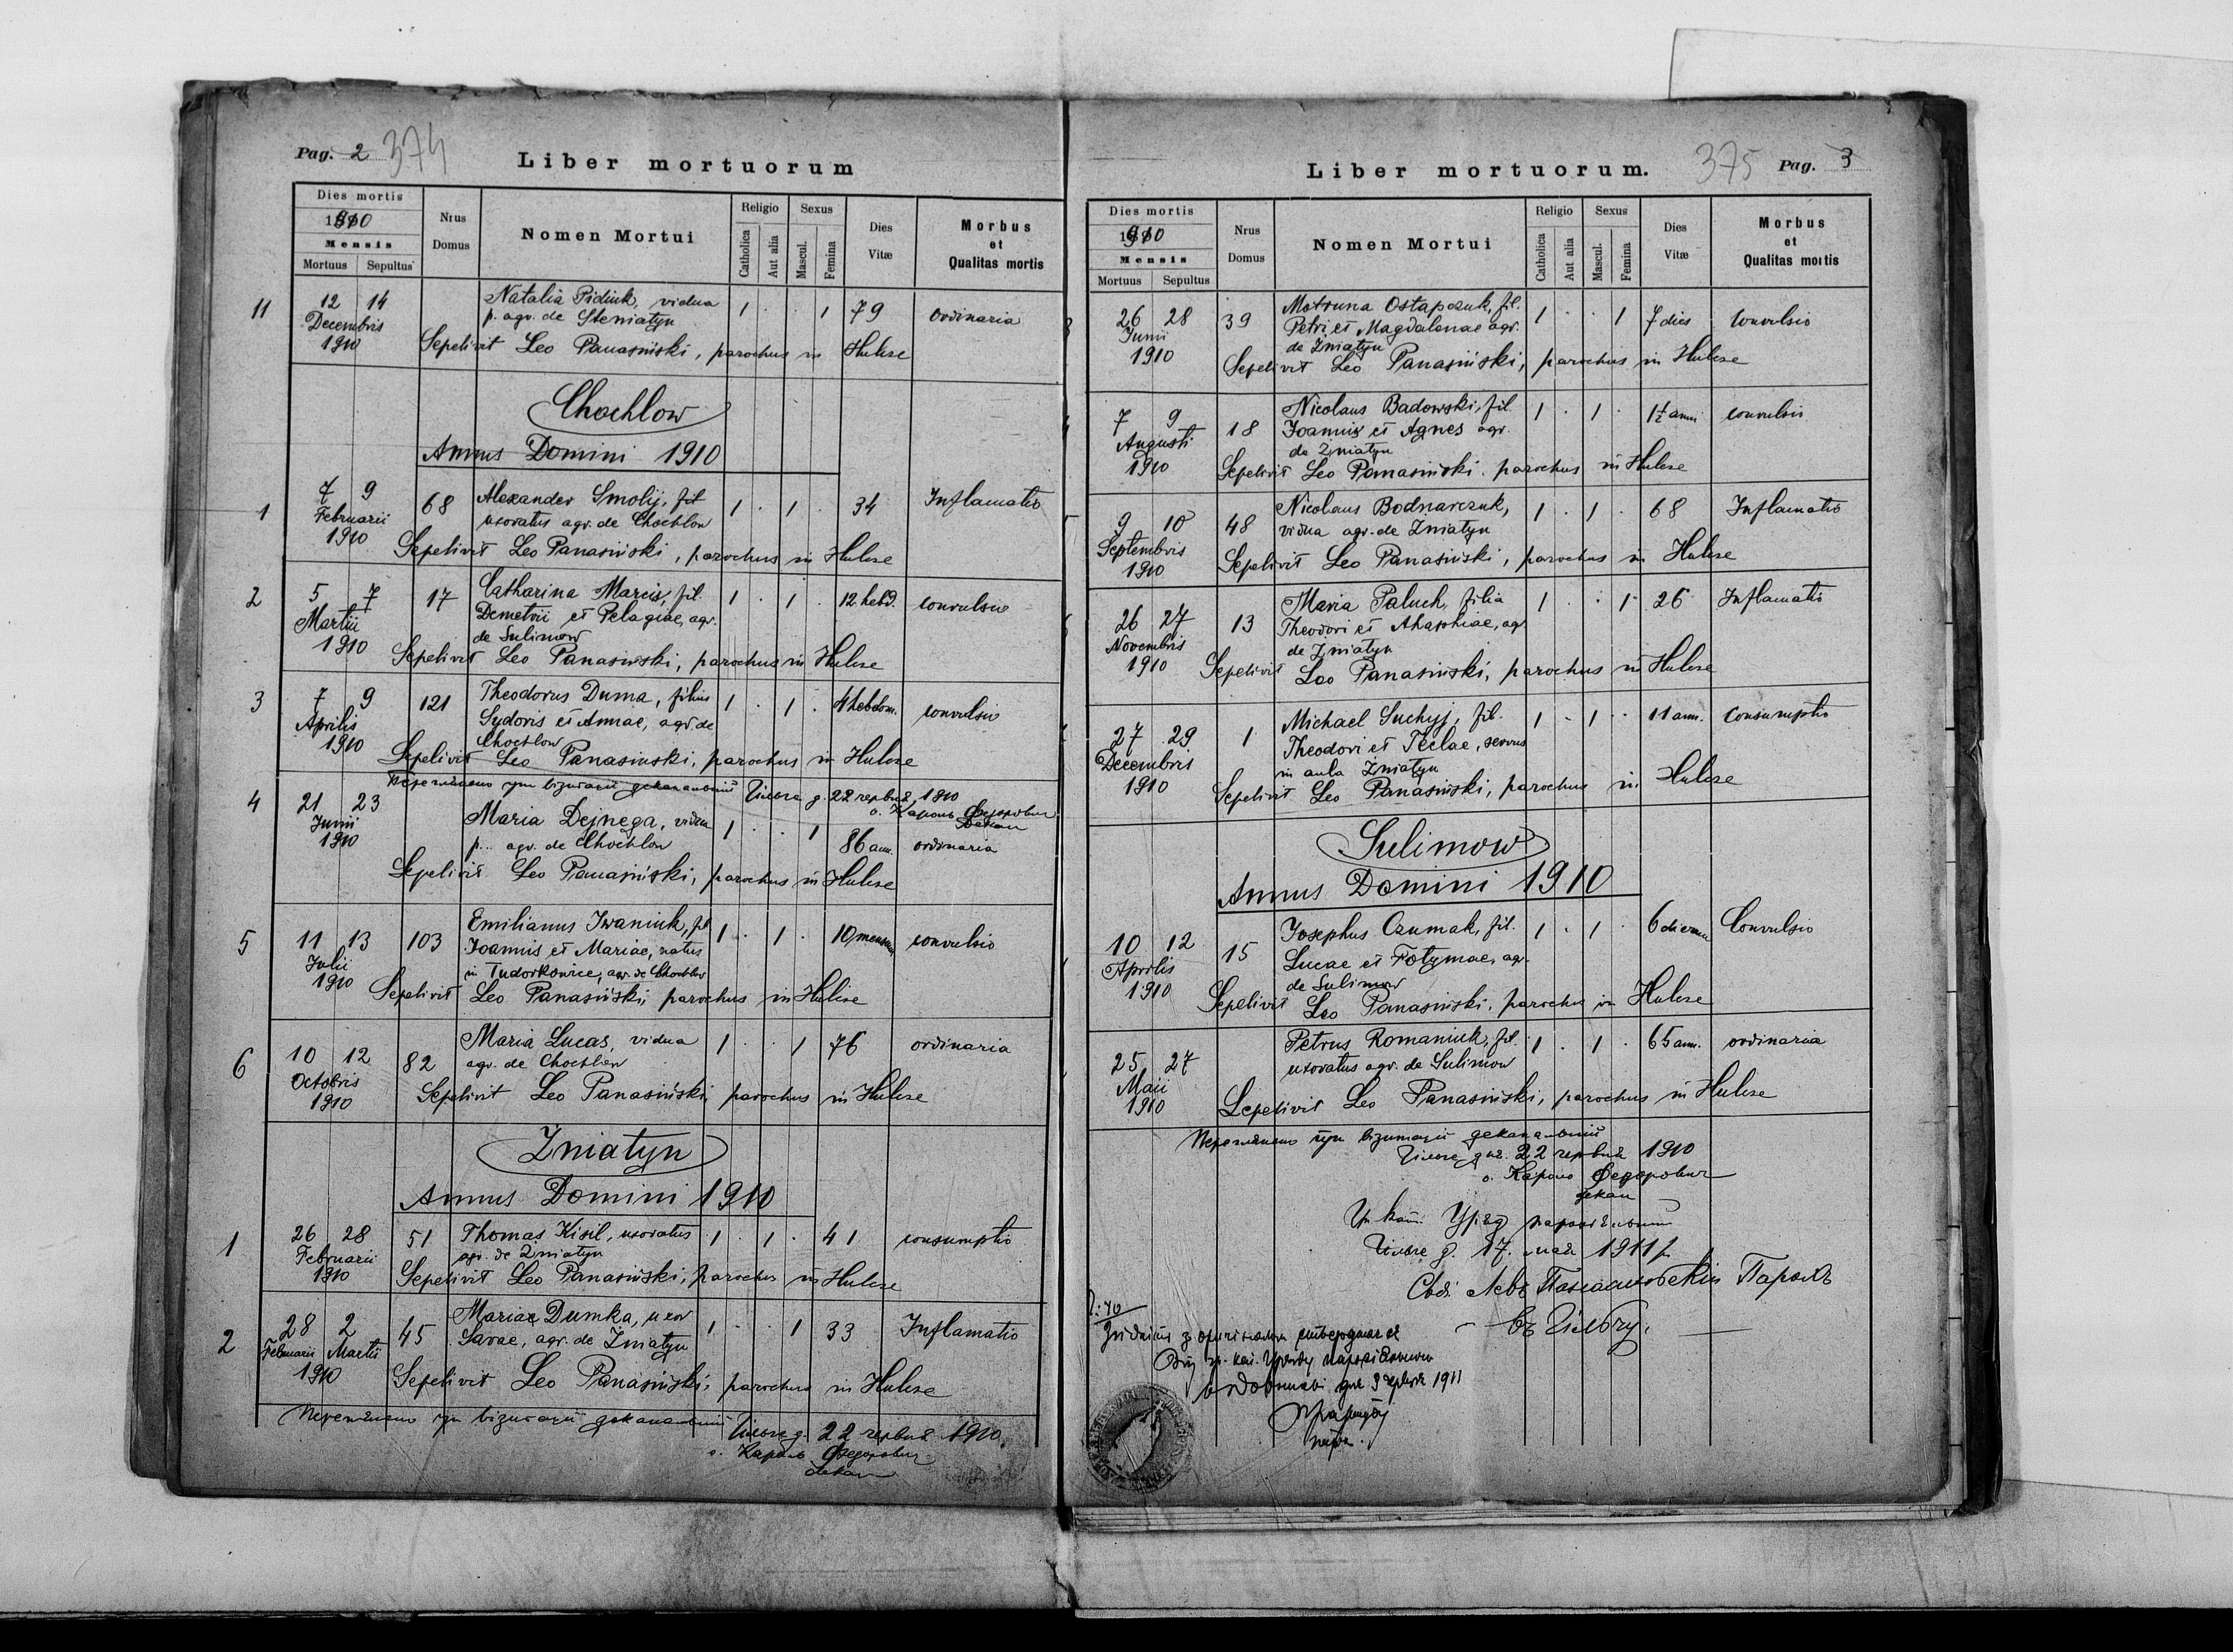 Pag. 2 374
Liber mortuorum
Dies mortis
1910
Mensis
Mortuus Sepultus
Nrus Domus
Nomen Mortui
Religio
Catholica
Aut alia
Sexus
Mascul.
Femina
Dies Vitæ
Morbus et Qualitas mortis
11 12 14 Natalia Pidiuk, vidua 1 . . 1 79 ordinaria
Decembris p. agr. de Steniatyn
1910 Sepelivit Leo Panasiński, parochus in Hulcze
Chochlow
Annus Domini 1910
1 7 9 68 Alexander Smolij, fil. 1 . 1 . 34 Inflamatio
Februarii uxoratus agr. de Chochlow
1910 Sepelivit Leo Panasiński, parochus in Hulcze
2 5 7 17 Catharina Marcis, fil. 1 . 1 . 12 hebd. convulsio
Martii Demetrii et Pelagiae, agr.
de Sulimow
1910 Sepelivit Leo Panasiński, parochus in Hulcze
3 7 9 121 Theodorus Duma, filius 1 . 1 . 4 hebdom. convulsio
Aprilis Sydoris et Annae, agr. de
Chochlow
1910 Sepelivit Leo Panasiński, parochus in Hulcze
візитациї деканальній 22 червня 1910
о. Федорович
декан
4 21 23 Maria Dejnega, vidua 1 . . 1 86 ann. ordinaria
Junii p. agr. de Chochlow
1910 Sepelivit Leo Panasiński, parochus in Hulcze
5 11 13 103 Emilianus Iwaniuk, fil. 1 . 1 . 10 mensium convulsio
Julii Joannis et Mariae, natus
in Tudorkowice, agr. de Chochlow
1910 Sepelivit Leo Panasiński, parochus in Hulcze
6 10 12 82 Maria Lucas, vidua 1 . . 1 76 ordinaria
Octobris agr. de Chochlow
1910 Sepelivit Leo Panasiński, parochus in Hulcze
Zniatyn
Annus Domini 1910
1 26 28 51 Thomas Kisil, uxoratus 1 . 1 . 41 consumptio
Februarii agr. de Zniatyn
1910 Sepelivit Leo Panasiński, parochus in Hulcze
2 28 2 45 Mariae Dumka, uxor 1 . . 1 33 Inflamatio
Februarii Martii Savae, agr. de Zniatyn
1910 Sepelivit Leo Panasiński, parochus in Hulcze
візитациї деканальній
22 червня 1910
о. Федорович
декан
Liber mortuorum. 375 Pag. 3
Dies mortis
1910
Mensis
Mortuus Sepultus
Nrus Domus
Nomen Mortui
Religio
Catholica
Aut alia
Sexus
Mascul.
Femina
Dies Vitæ
Morbus et Qualitas mortis
26 28 39 Motruna Ostapczuk, fil. 1 . . 1 7 dies convulsio
Junii Petri et Magdalenae agr.
de Zniatyn
1910 Sepelivit Leo Panasiński, parochus in Hulcze
7 9 18 Nicolaus Badowski, fil. 1 . 1 . 1½ anni convulsio
Augusti Joannis et Agnes agr.
de Zniatyn
1910 Sepelivit Leo Panasiński, parochus in Hulcze
9 10 48 Nicolaus Bodnarczuk, 1 . 1 . 68 Inflamatio
Septembris vidua agr. de Zniatyn
1910 Sepelivit Leo Panasiński, parochus in Hulcze
26 27 13 Maria Paluch, filia 1 . . 1 26 Inflamatio
Novembris Theodori et Ahaphiae, agr.
de Zniatyn
1910 Sepelivit Leo Panasiński, parochus in Hulcze
27 29 1 Michael Suchyj, fil. 1 . 1 . 11 ann. Consumptio
Decembris Theodori et Teclae, servus
in aula Zniatyn
1910 Sepelivit Leo Panasiński, parochus in Hulcze
Sulimow
Annus Domini 1910
10 12 15 Josephus Czumak, fil. 1 . 1 . 6 dierum Convulsio
Aprilis Lucae et Fotymae, agr.
de Sulimow
1910 Sepelivit Leo Panasiński, parochus in Hulcze
25 27 Petrus Romaniuk, fil. 1 . 1 . 65 ann. ordinaria
Maii uxoratus agr. de Sulimow
1910 Sepelivit Leo Panasiński, parochus in Hulcze
візитациї деканальній
22 червня 1910
о. Федорович
декан
Гр. кат. Уряд парохіяльний
17. мая 1911
Левъ Парохъ
въ
З оригіналом
гр. кат. Уряду
дня 3 червня 1911